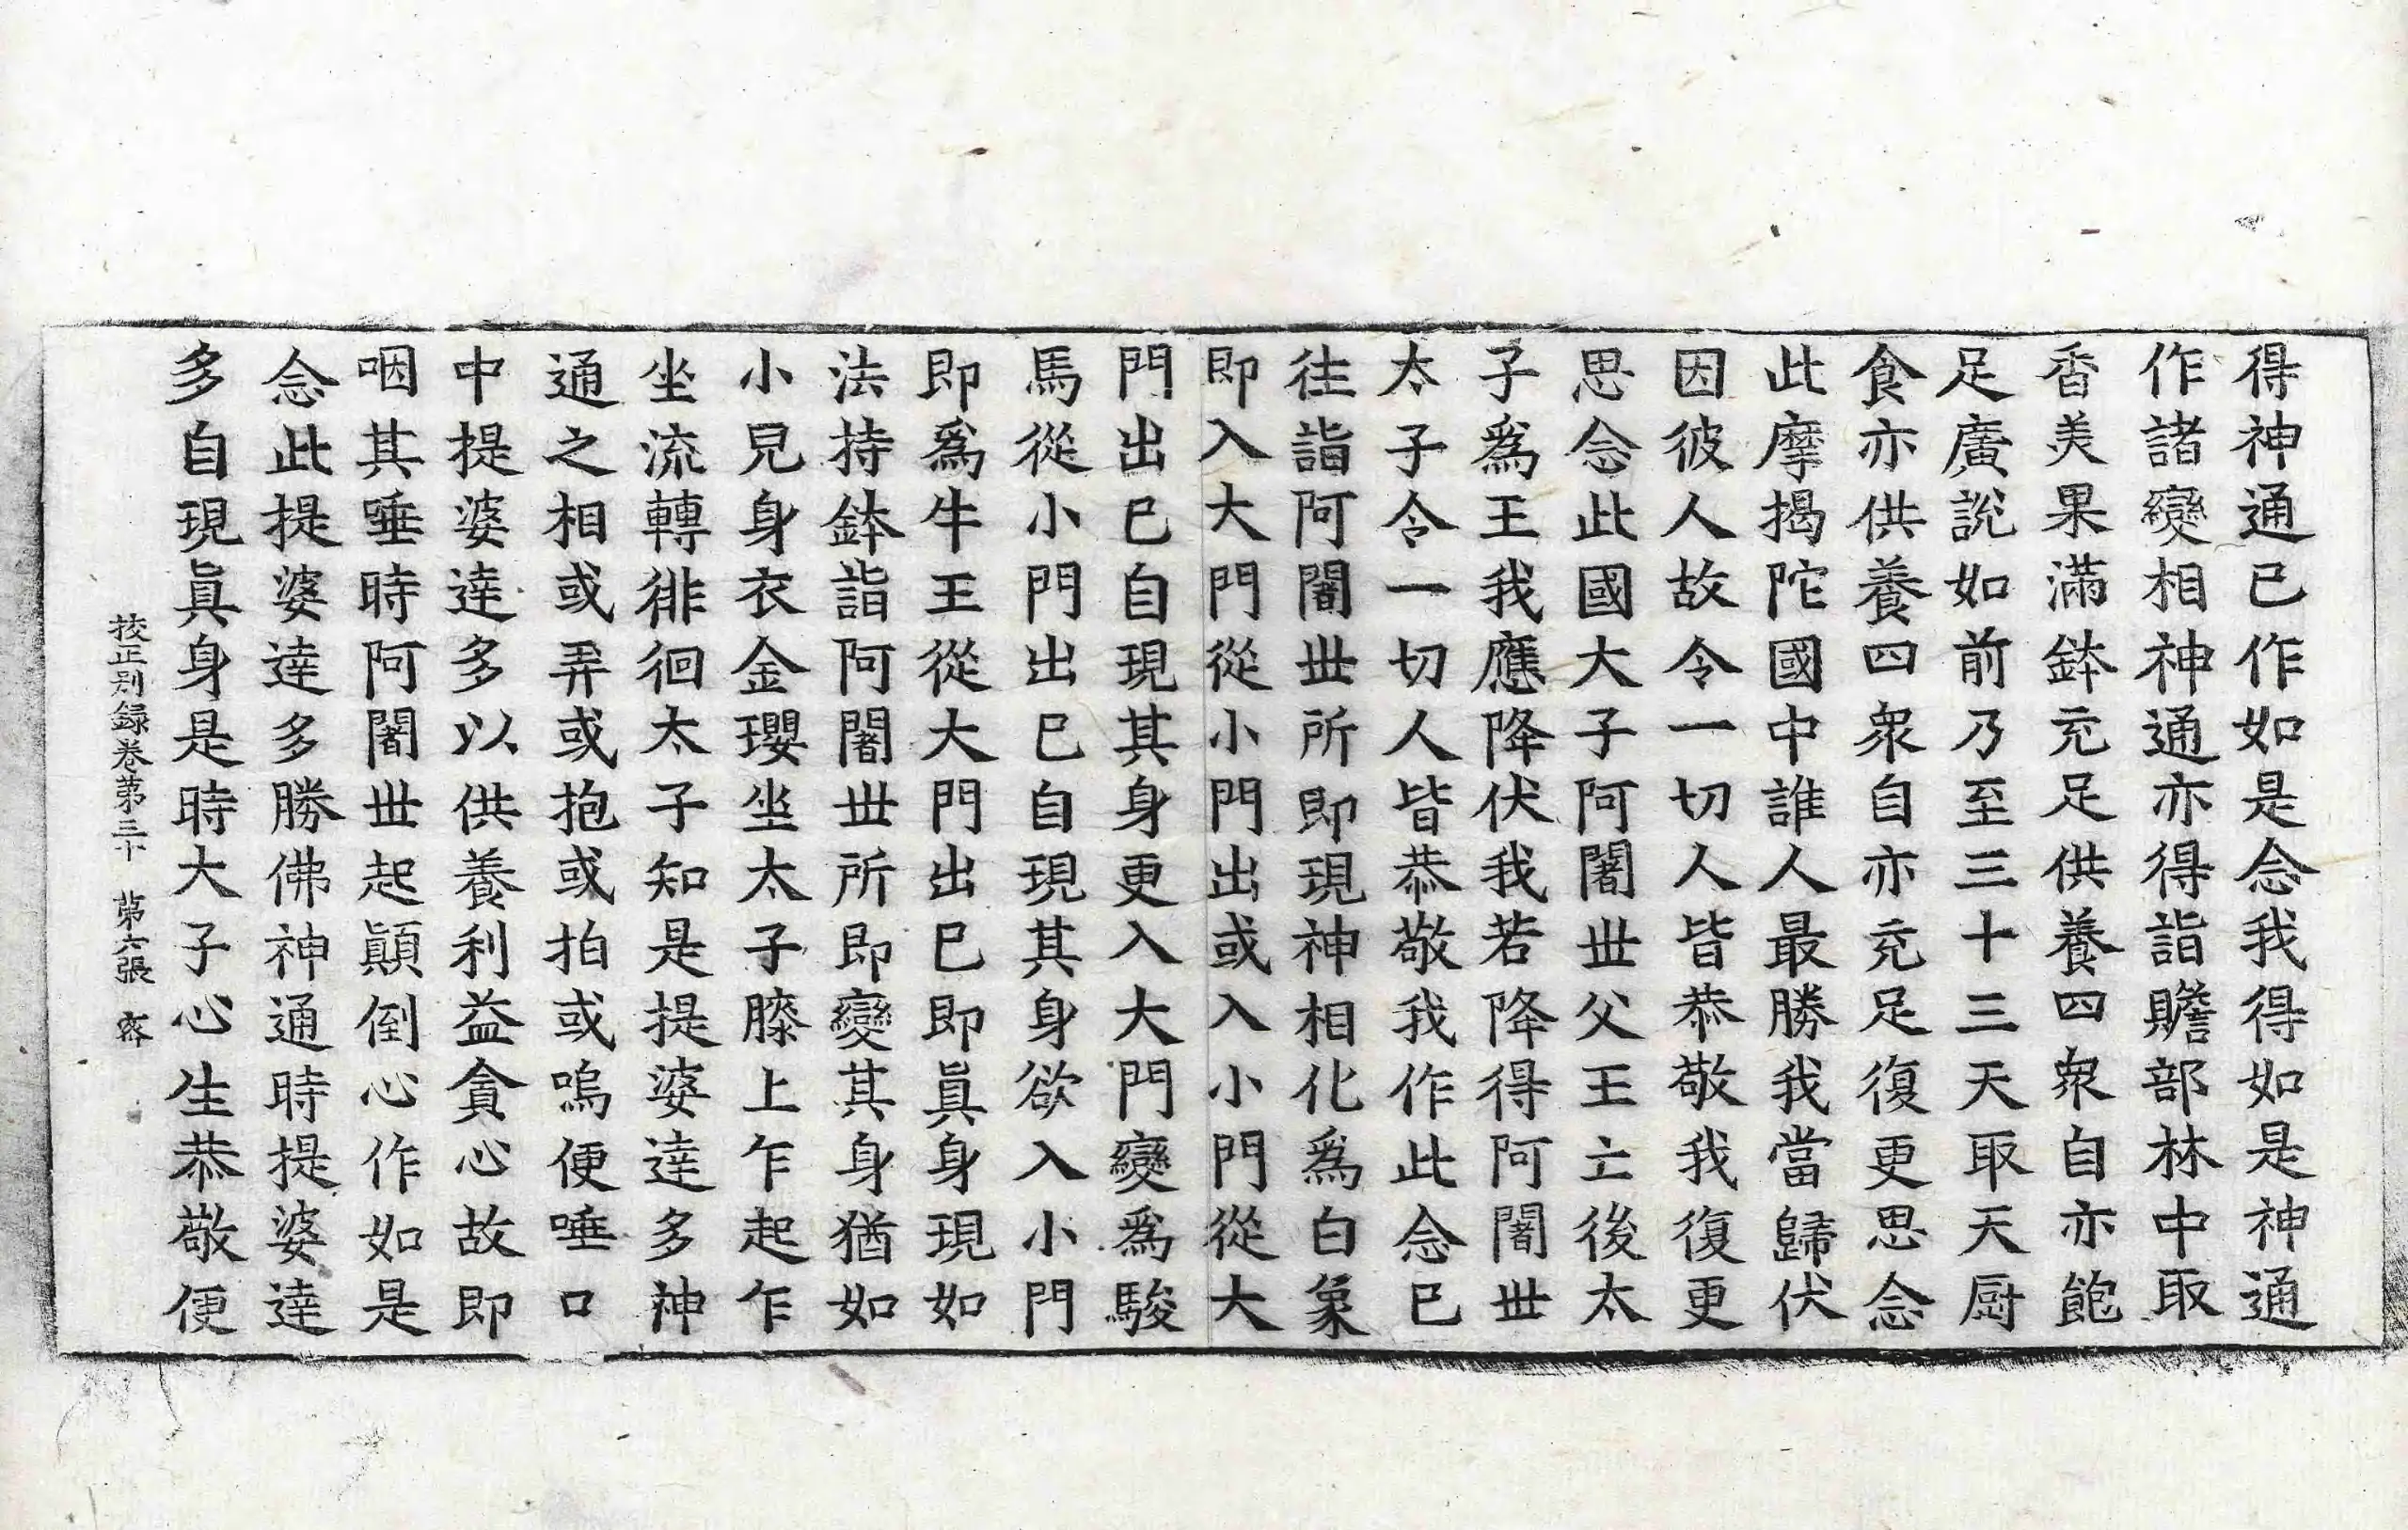 得神通已作如是念我得如是神通
作諸變相神通亦得詣贍部林中取
香美果滿鉢充足供養四衆自亦飽
足廣說如前乃至三十三天取天厨
食亦供養四衆自亦充足復更思念
此摩揭陀國中誰人最勝我當歸伏
因彼人故令一切人皆恭敬我復更
思念此國大子阿闍世父王亡後太
子爲王我應降伏我若降得阿闍世
太子令一切人皆恭敬我作此念已
往詣阿闍世所即現神相化爲白象
即入大門從小門出或入小門從大
門出已自現其身更入大門變爲駿
馬從小門出已自現其身欲入小門
即爲牛王從大門出已即眞身現如
法持鉢詣阿闍世所即變其身猶如
小兒身衣金瓔坐太子膝上乍起乍
坐流轉徘徊太子知是提婆達多神
通之相或弄或抱或拍或嗚便唾口
中提婆達多以供養利益貪心故即
咽其唾時阿闍世起顚倒心作如是
念此提婆達多勝佛神通時提婆達
多自現眞身是時大子心生恭敬便
挍正別録卷第三十 第六張